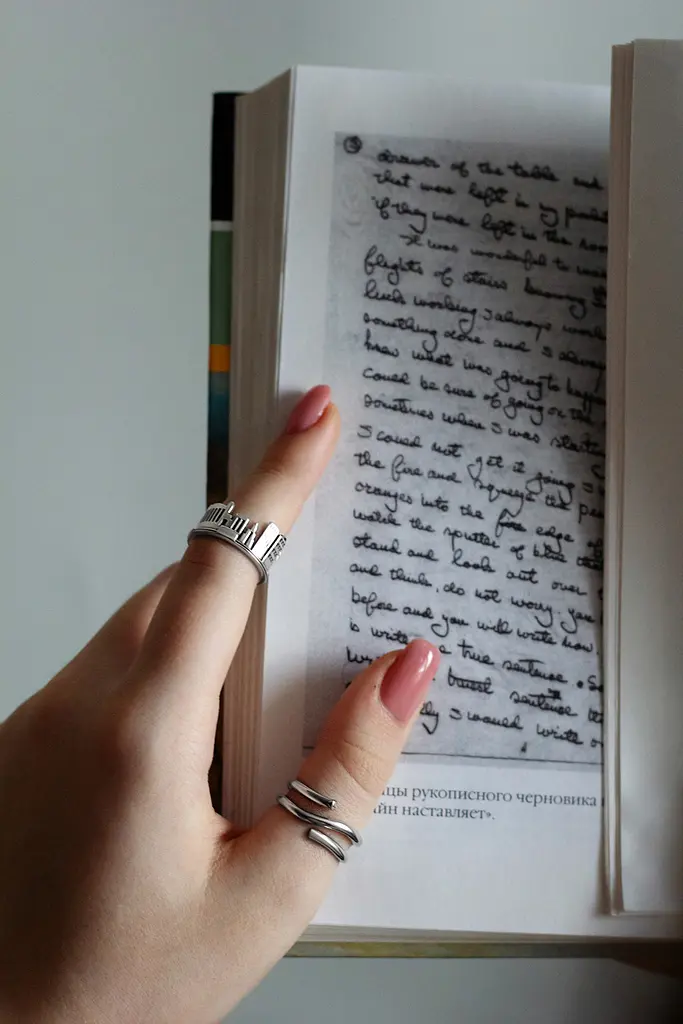 3
drawer of the table and
that were left in my pocket
if they were left in the room
It was wonderful to walk
flights of stairs knowing I
luck working I always work
something done and I always
knew what was going to happ
could be sure of going on the
sometimes when I was starting
I could not get it going I
the fire and squeeze the pee
oranges into the edge of
watch the sputter of blue that
stand and look out over
and think, do not worry. you
before and you will write now.
is write true sentence. So
truest sentence th
ly I would write o
цы рукописного черновика
йн наставляет».